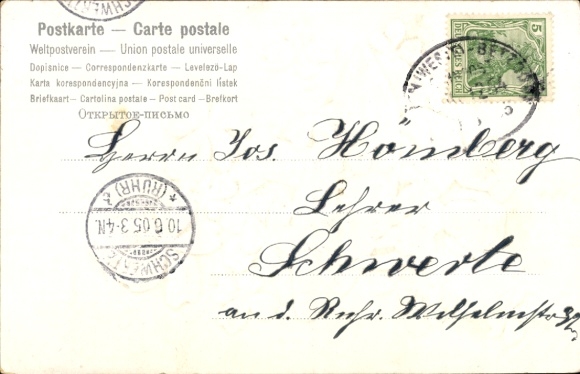 Postkarte — Carte postale
Weltpostverein — Union postale universelle
Dopisnice — Correspondenzkarte — Levelező-Lap
Karta korespondencyjna — Korespondenční lístek
Briefkaart — Cartolina postale — Post card — Brefkort
Открытое-письмо
5
DEUTSCHES REICH
Herrn Jos. Hömberg
Lehrer
Schwerte
an d. Ruhr. Wilhelmstr.
SCHWERTE
* (RUHR) *
10 6 05 3-4N.